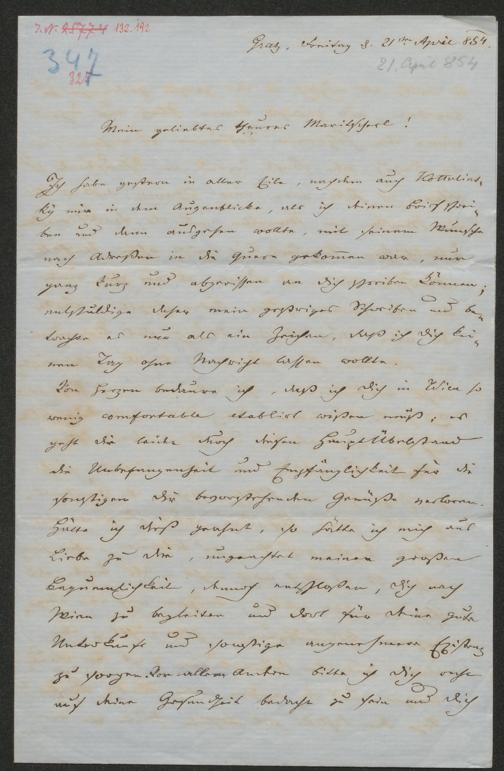 J. N. 25774 132.192
347
327
Gratz, Freitag d. 21ten April 854
21. April 854
Mein geliebtes theures Marischerl!
Ich habe gestern in aller Eile, nachdem auch Kottulins-
ky mir in dem Augenblicke, als ich deinen Brief schrei-
ben und dann ausgehen wollte, mit seinem Wunsche
nach Adreßen in die Quere gekommen war, nur
ganz kurz und abgerissen an dich schreiben können;
entschuldige daher mein gestriges Schreiben und be-
trachte es nur als ein Zeichen, daß ich dich kei-
nen Tag ohne Nachricht lassen wollte.
Von Herzen bedaure ich, daß ich dich in Wien so
wenig comfortable etablirt wissen muß; es
geht dir leider durch diesen Hauptübelstand
die Unbefangenheit und Empfänglichkeit für die
sonstigen dir bevorstehenden Genüße verloren.
Hätte ich dieß geahnt, so hätte ich mich aus
Liebe zu dir, ungeachtet meiner großen
Bequemlichkeit, dennoch entschloßen, dich nach
Wien zu begleiten und dort für deine gute
Unterkunft und sonstige angenehmere Existenz
zu sorgen. Vor allem Andern bitte ich dich recht
auf deine Gesundheit bedacht zu sein und dich